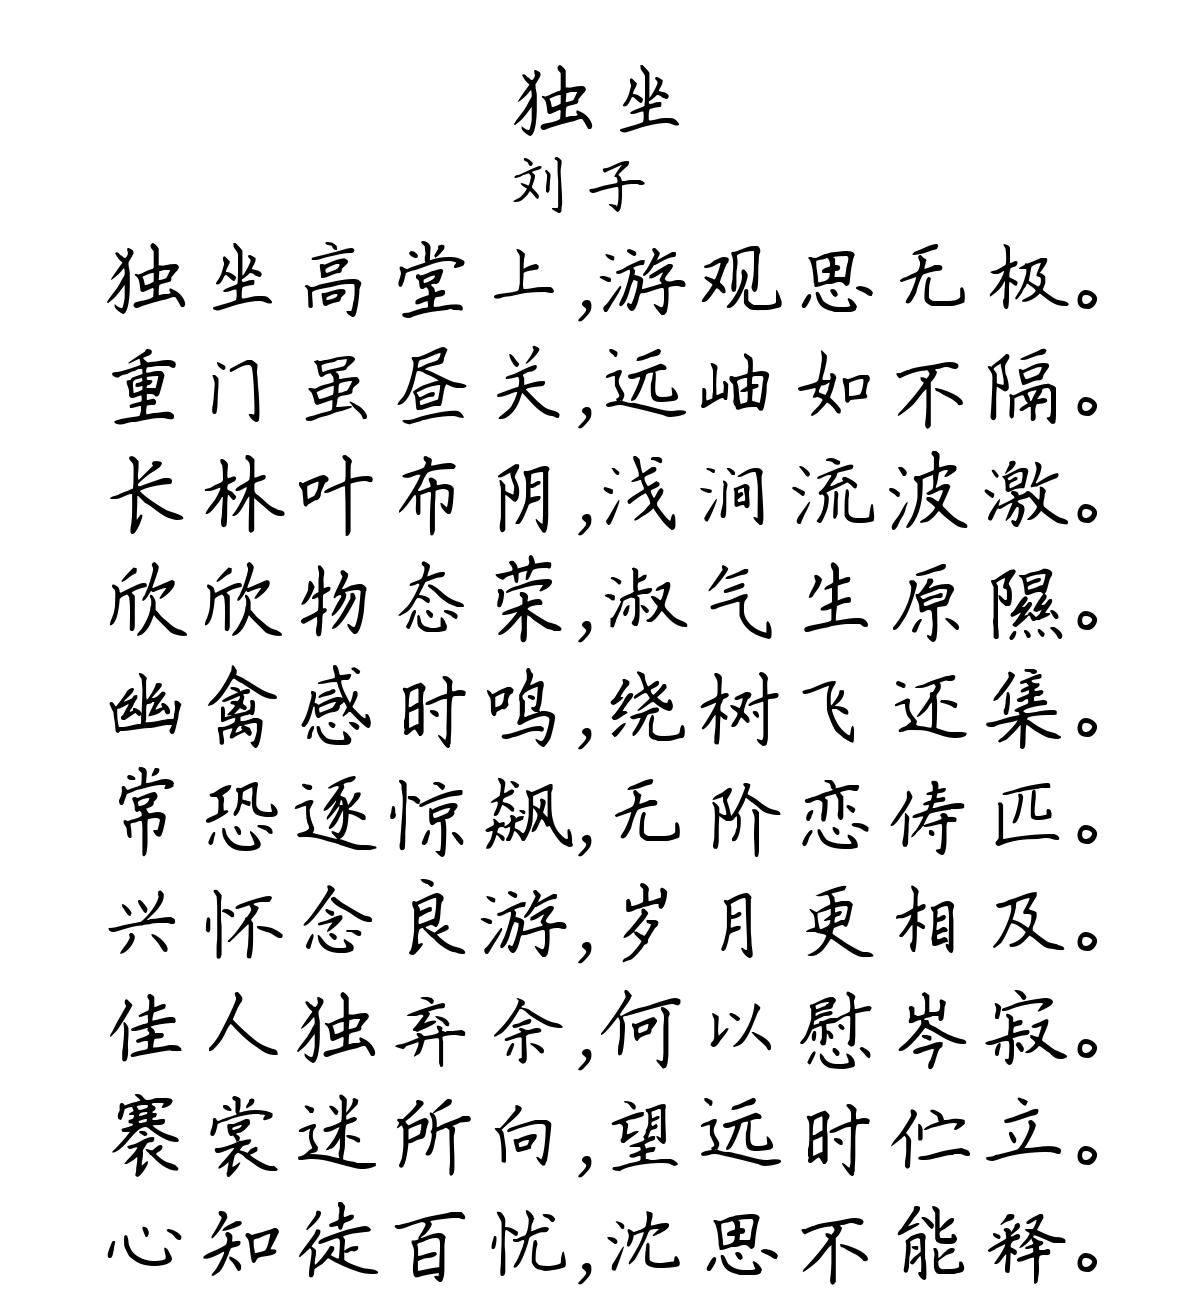 独坐
刘子
独坐高堂上,游观思无极。
重门虽昼关,远岫如不隔。
长林叶布阴,浅涧流波激。
欣欣物态荣,淑气生原隰。
幽禽感时鸣,绕树飞还集。
常恐逐惊飙,无阶恋俦匹。
兴怀念良游,岁月更相及。
佳人独弃余,何以慰岑寂。
褰裳迷所向,望远时伫立。
心知徒百忧,沈思不能释。